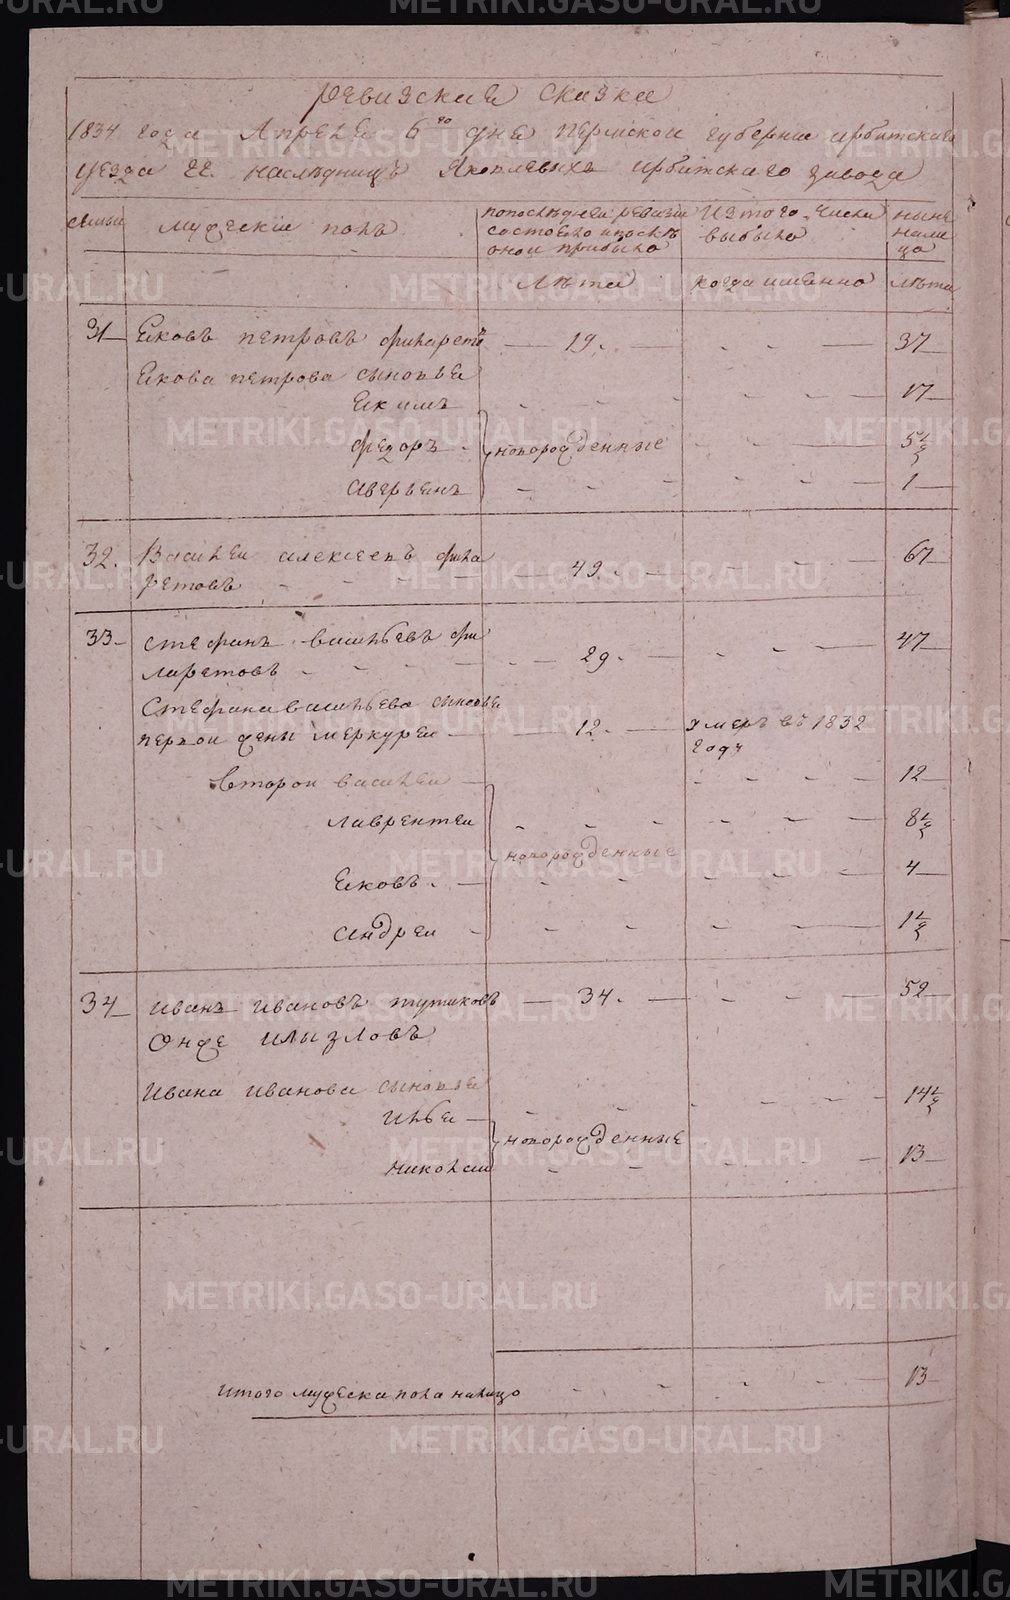 Ревизская сказка
1834 года Апреля 6го дня пермской губернии ирбитскаго
уезда гг. наследницъ Яковлевыхъ ирбитскаго завода
семьи
мужеский полъ
по последней ревизии
состояло и после
оной прибыло
Изтого числа
выбыло
ныне
нали
цо
лета
когда имянно
лета
31 Яковъ петровъ филаретовъ 19. 37
Якова петрова сыновья 17
Якимъ
федоръ новорожденные 5½
аверьянъ 1
32. Василей алексеевъ фила 67
ретовъ 49.
33 стефанъ васильевъ фи 47
ларетовъ 29.
Стефана васильева сыновья
первой жены меркурей 12. умеръ въ 1832
году
второй василей 12
лаврентей 8½
новорожденные
Яковъ 4
андрей 1½
34 иванъ ивановъ тутиковъ 34. 52
Онже илызловъ
ивана иванова сыновья 14½
илья
новорожденные
николай 13
итого мужеска пола налицо 13
METRIKI.GASO-URAL.RU